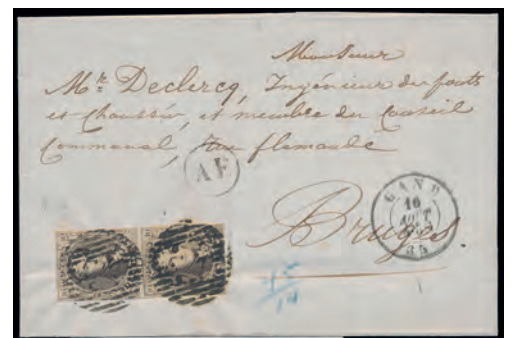 Monsieur
Mr. Declercq, Ingénieur des ponts
et chaussées, et membre du Conseil
Communal, rue flamande
AF
GAND
16
AOUT
35
Bruges